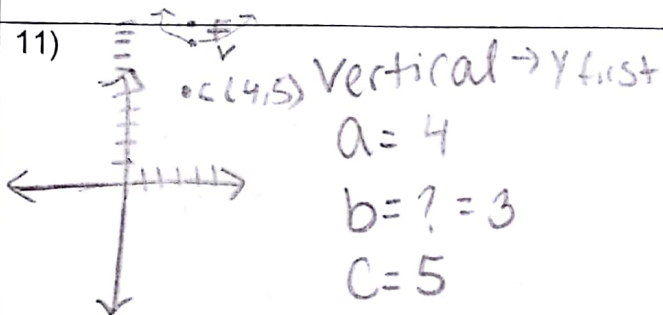 11)
F
V
•C(4,5) Vertical → y first
a = 4
b = ? = 3
C = 5